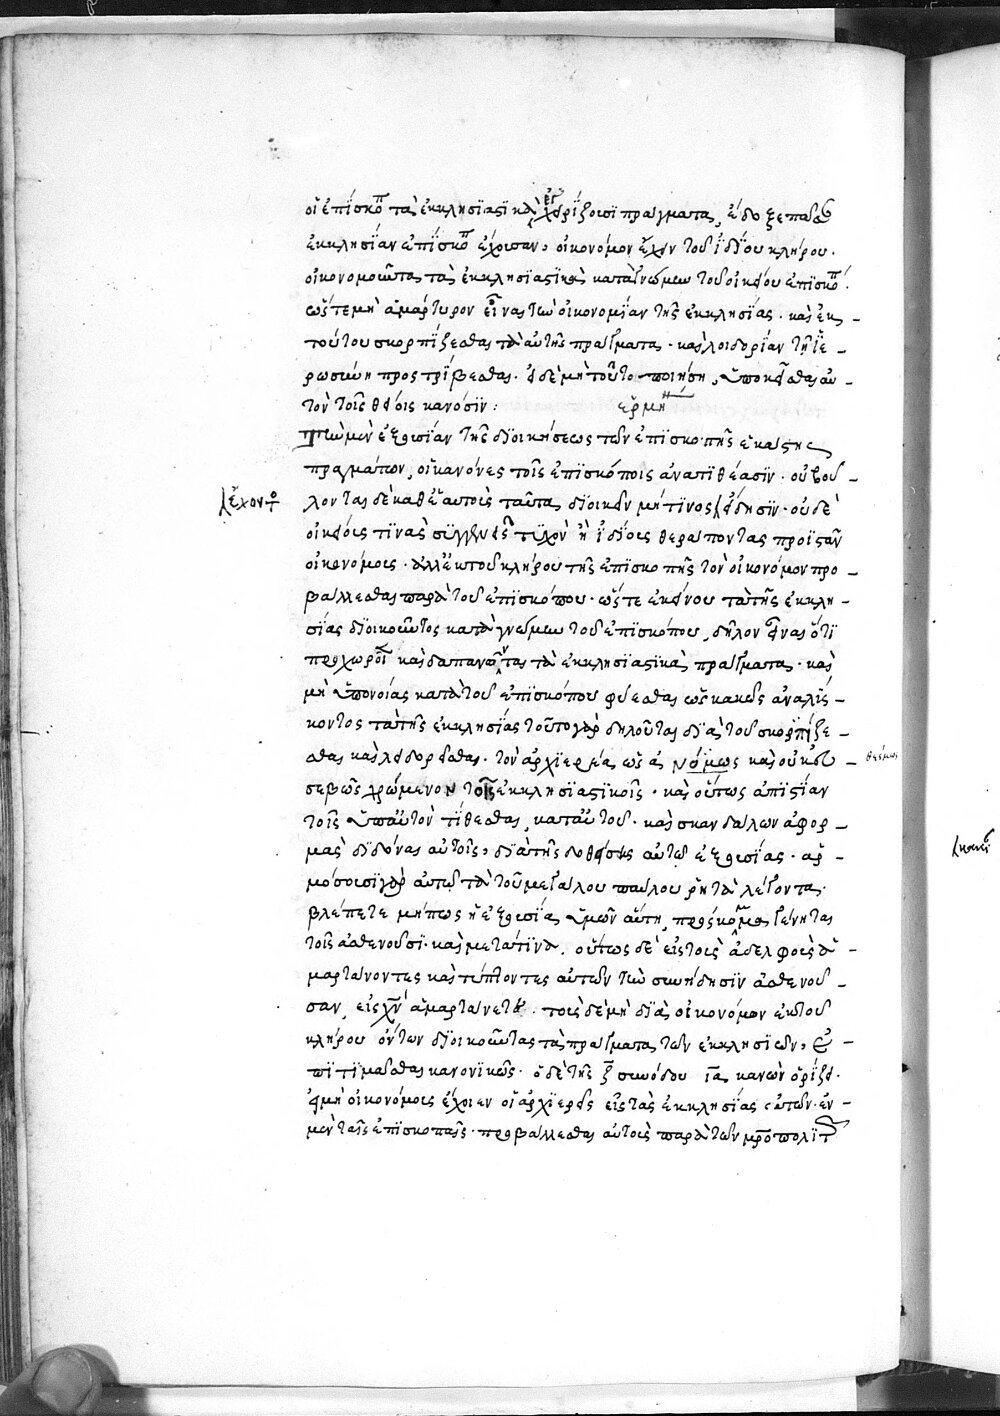 οἱ ἐπίσκοποι τὰ ἐκκλησιαστικὰ χειρίζουσι πράγματα, ἔδοξε πᾶσαν
ἐκκλησίαν ἐπίσκοπον ἔχουσαν, οἰκονόμον ἔχειν τοῦ ἰδίου κλήρου.
οἰκονομοῦντα τὰ ἐκκλησιαστικὰ κατὰ γνώμην τοῦ οἰκείου ἐπισκόπου.
ὥστε μὴ ἀμάρτυρον εἶναι τὴν οἰκονομίαν τῆς ἐκκλησίας. καὶ ἐκ
τούτου σκορπίζεσθαι τὰ αὐτῆς πράγματα. καὶ λοιδορίαν τῇ ἱε-
ρωσύνῃ προστρίβεσθαι. εἰ δὲ μὴ τοῦτο ποιήσῃ, ὑποκεῖσθαι αὐ-
τὸν τοῖς θείοις κανόσιν:
ἑρμη
Τὴν μὲν ἐξουσίαν τῆς διοικήσεως τῶν ἐπισκοπῆς ἑκάστης
πραγμάτων, οἱ κανόνες τοῖς ἐπισκόποις ἀνατιθέασιν. οὐ βού-
λονται δὲ καθ' ἑαυτοὺς ταῦτα διοικεῖν μή τινος εἰδήσιν. οὐδὲ
οἰκείοις τινὰς συγγενεῖς τυχὸν ἢ ἰδίοις θεράποντας προϊστᾶν
οἰκονόμοις. ἀλλ' ἐκ τοῦ κλήρου τῆς ἐπισκοπῆς τὸν οἰκονόμον προ-
βάλλεσθαι παρὰ τοῦ ἐπισκόπου. ὥστε ἐκείνου τὰ τῆς ἐκκλη-
σίας διοικοῦντος κατὰ γνώμην τοῦ ἐπισκόπου, δῆλον εἶναι ὅτι
προχωροῦσι καὶ δαπανῶνται τὰ ἐκκλησιαστικὰ πράγματα. καὶ
μὴ ὑπονοίας κατὰ τοῦ ἐπισκόπου φύεσθαι ὡς κακῶς ἀναλίσ-
κοντος τὰ τῆς ἐκκλησίας τοῦτο γὰρ δηλοῦται διὰ τοῦ σκορπίζε-
σθαι καὶ λοιδορεῖσθαι. τὸν ἀρχιερέα, ὡς ἀνόμως καὶ οὐκ εὐ-
σεβῶς χρώμενον τοῖς ἐκκλησιαστικοῖς. καὶ οὕτως ἀπιστίαν
τοῖς ὑπ' αὐτὸν τίθεσθαι, κατ' αὐτοῦ. καὶ σκανδάλων ἀφορ-
μὰς διδόναι αὐτοῖς, διὰ τῆς δοθείσης αὐτῷ ἐξουσίας. ἁρ-
μόσουσι γὰρ αὐτῷ τὰ τοῦ μεγάλου παύλου ῥητὰ λέγοντα.
βλέπετε μήπως ἡ ἐξουσία ὑμῶν αὕτη, πρόσκομμα γένηται
τοῖς ἀσθενοῦσι. καὶ μετά τινα. οὕτως δὲ εἰς τοὺς ἀδελφοὺς ἁ-
μαρτάνοντες καὶ τύπτοντες αὐτῶν τὴν συνείδησιν ἀσθενοῦ-
σαν, εἰς χν ἁμαρτάνετε. τοὺς δὲ μὴ διὰ οἰκονόμων ἐκ τοῦ
κλήρου ὄντων διοικοῦντας τὰ πράγματα τῶν ἐκκλησιῶν, ἐ-
πιτιμᾶσθαι κανονικῶς. ὁ δὲ τῆς ζ συνόδου ια κανὼν ὁρίζει.
εἰ μὴ οἰκονόμοις ἔχοιεν οἱ ἀρχιερεῖς εἰς τὰς ἐκκλησίας αὐτῶν. ἐν
μὲν ταῖς ἐπισκοπαῖς. προβάλλεσθαι αὐτοὺς παρὰ τῶν μητροπολιτῶν